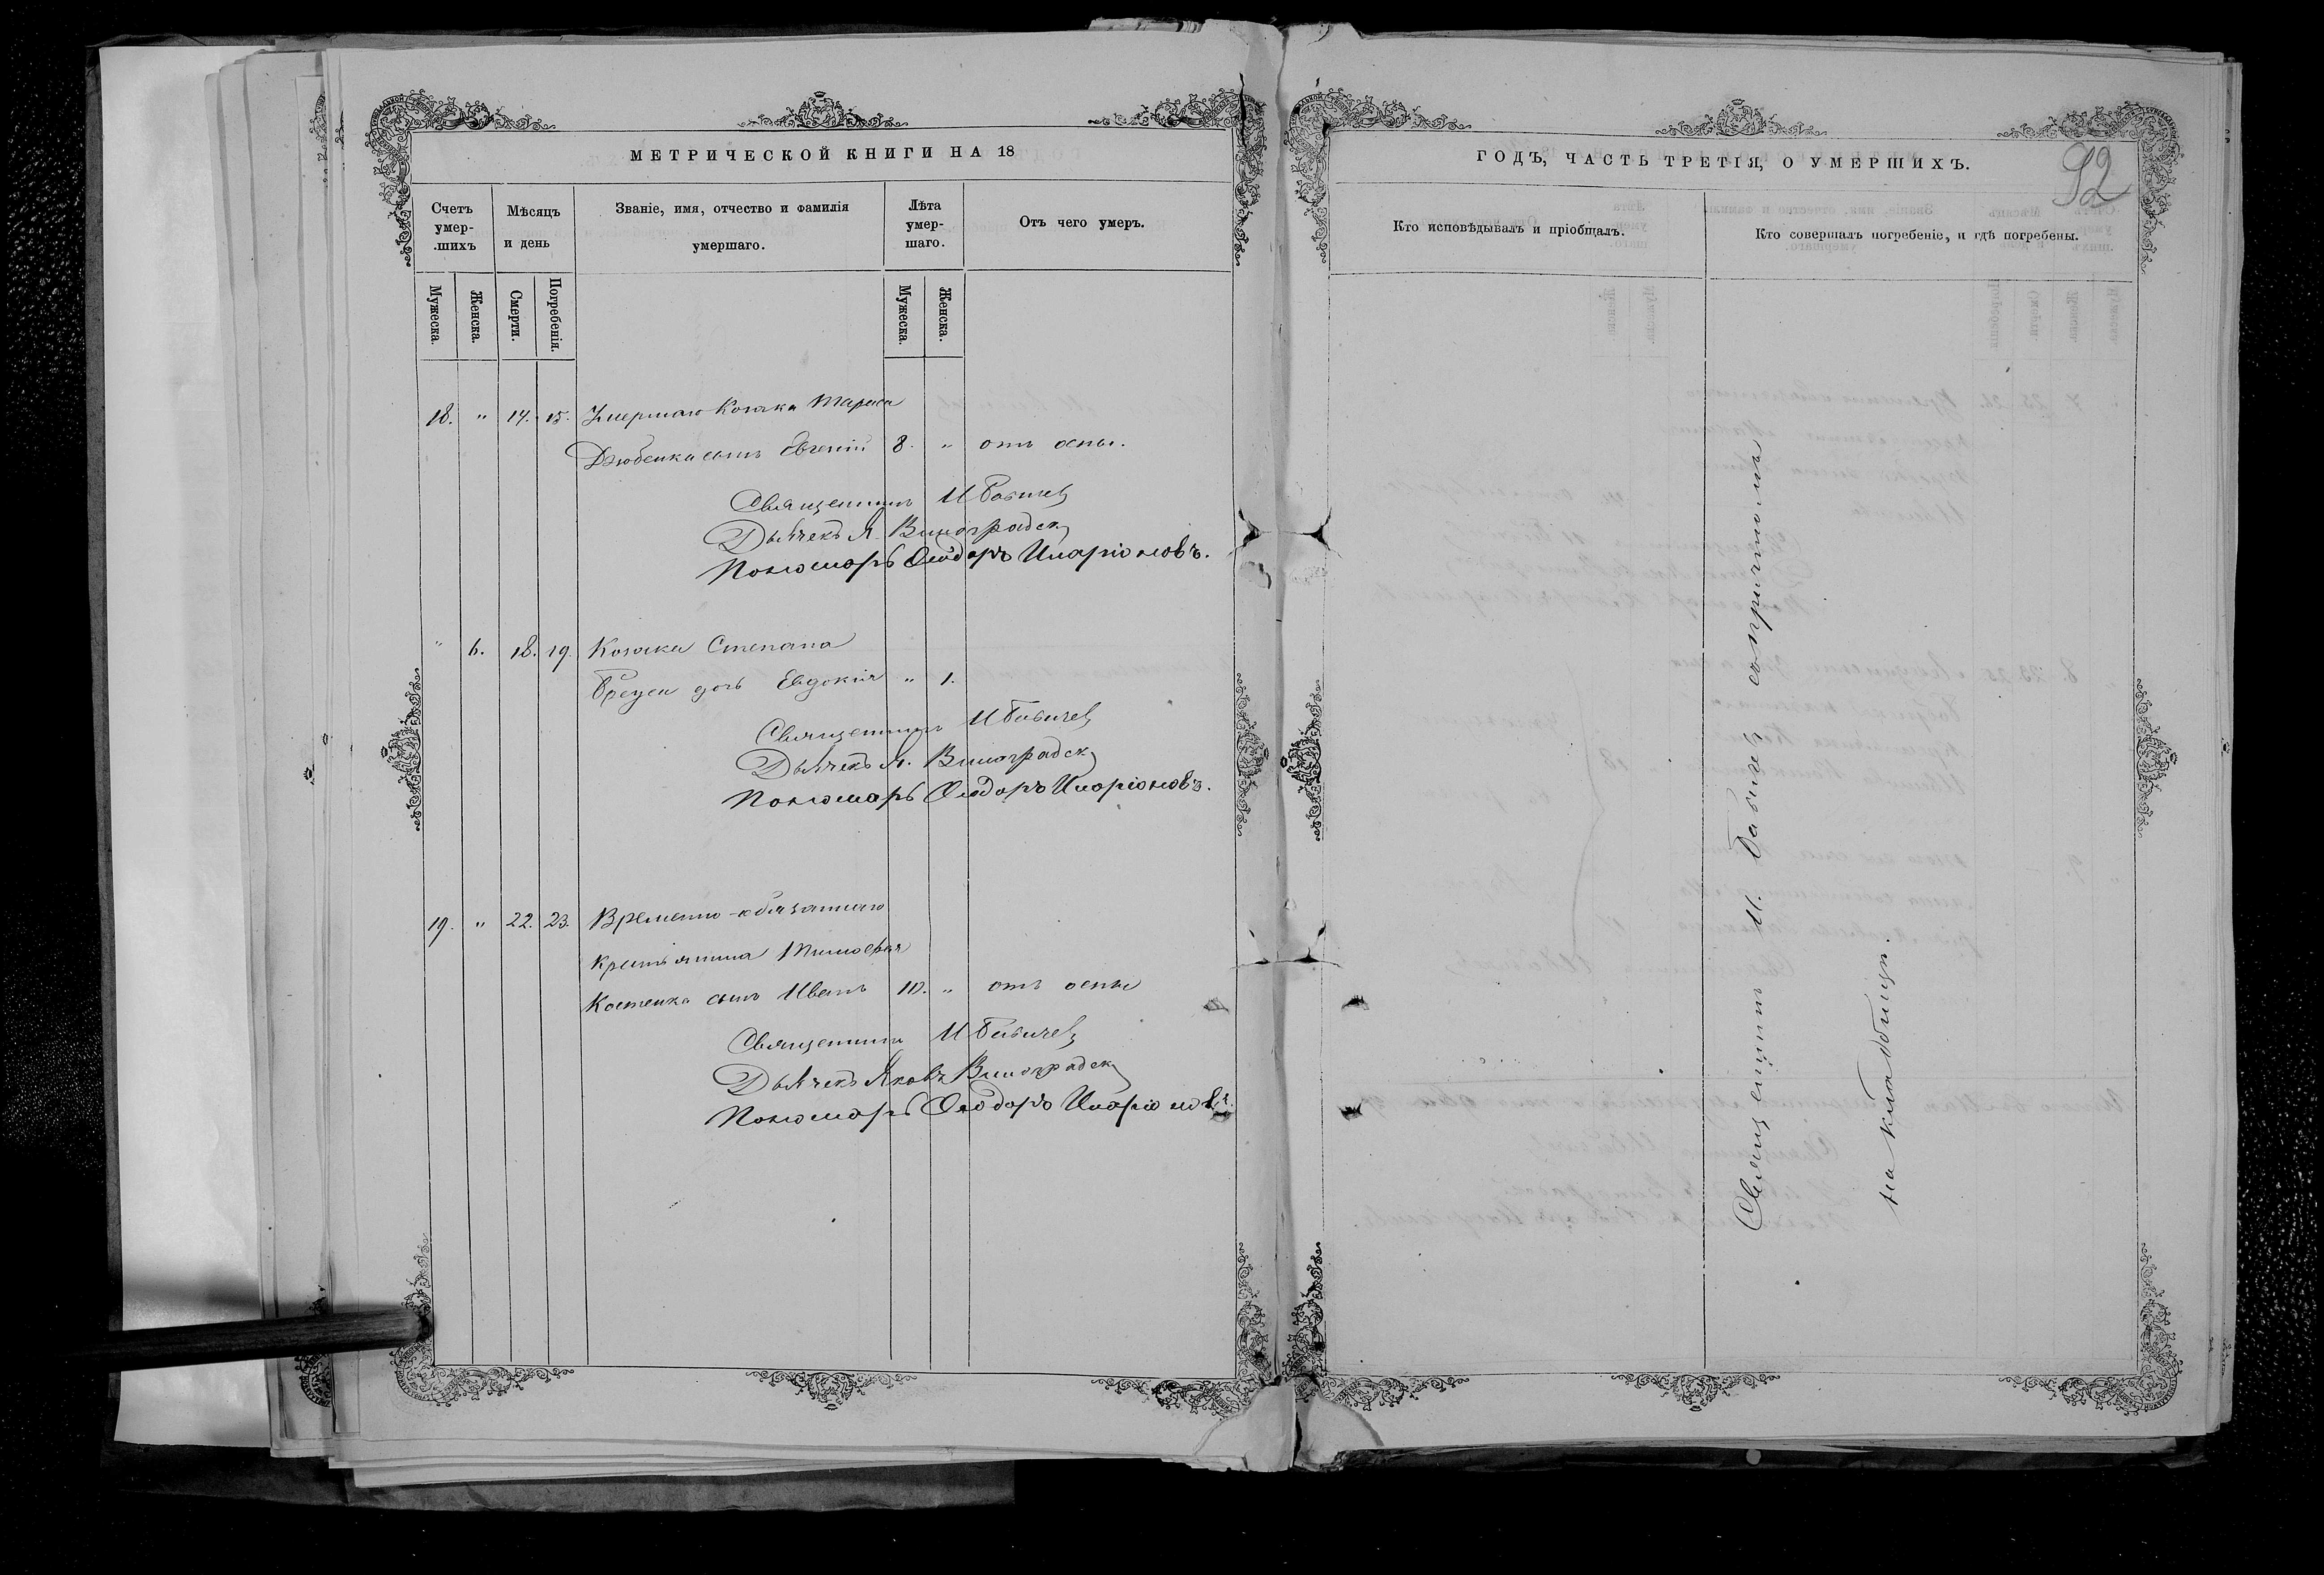 МЕТРИЧЕСКОЙ КНИГИ НА 18
Счетъ умер-шихъ
Мѣсяцъ и день
Званіе, имя, отчество и фамилія умершаго.
Лѣта умер-шаго.
Отъ чего умеръ.
Мужеска. Женска. Смерти. Погребенія. Мужеска. Женска.
18. " 14. 15. Умершаго Козака Тараса
Дзюбенка сынъ Евгеній 8. " отъ оспы.
Священникъ И Бабичев
Дьячекъ Я. Виноградск
Пономарь Ѳеодоръ Иларіоновъ.
" 6. 18. 19. Козака Степана
дочь Евдокія " 1.
Священникъ И Бабичев
Дьячекъ Я. Виноградск
Пономарь Ѳеодоръ Иларіоновъ.
19. " 22. 23. Временно-обязаннаго
крестьянина Тимоѳея
Костенка сынъ Иванъ 10. " отъ оспы
Священникъ И Бабичев
Дьячекъ Яковъ Виноградск
Пономарь Ѳеодоръ Иларіоновъ.
ГОДЪ, ЧАСТЬ ТРЕТІЯ, О УМЕРШИХЪ.
92
Кто исповѣдывалъ и пріобщалъ.
Кто совершалъ погребеніе, и гдѣ погребены.
Священникъ И. Бабичев съ причтомъ
на кладбищѣ.